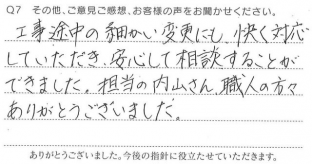 Q7 その他、ご意見ご感想、お客様の声をお聞かせください。
工事途中の細かい変更にも、快く対応
していただき、安心して相談することが
できました。担当の内山さん、職人の方々
ありがとうございました。
ありがとうございました。今後の指針に役立たせていただきます。